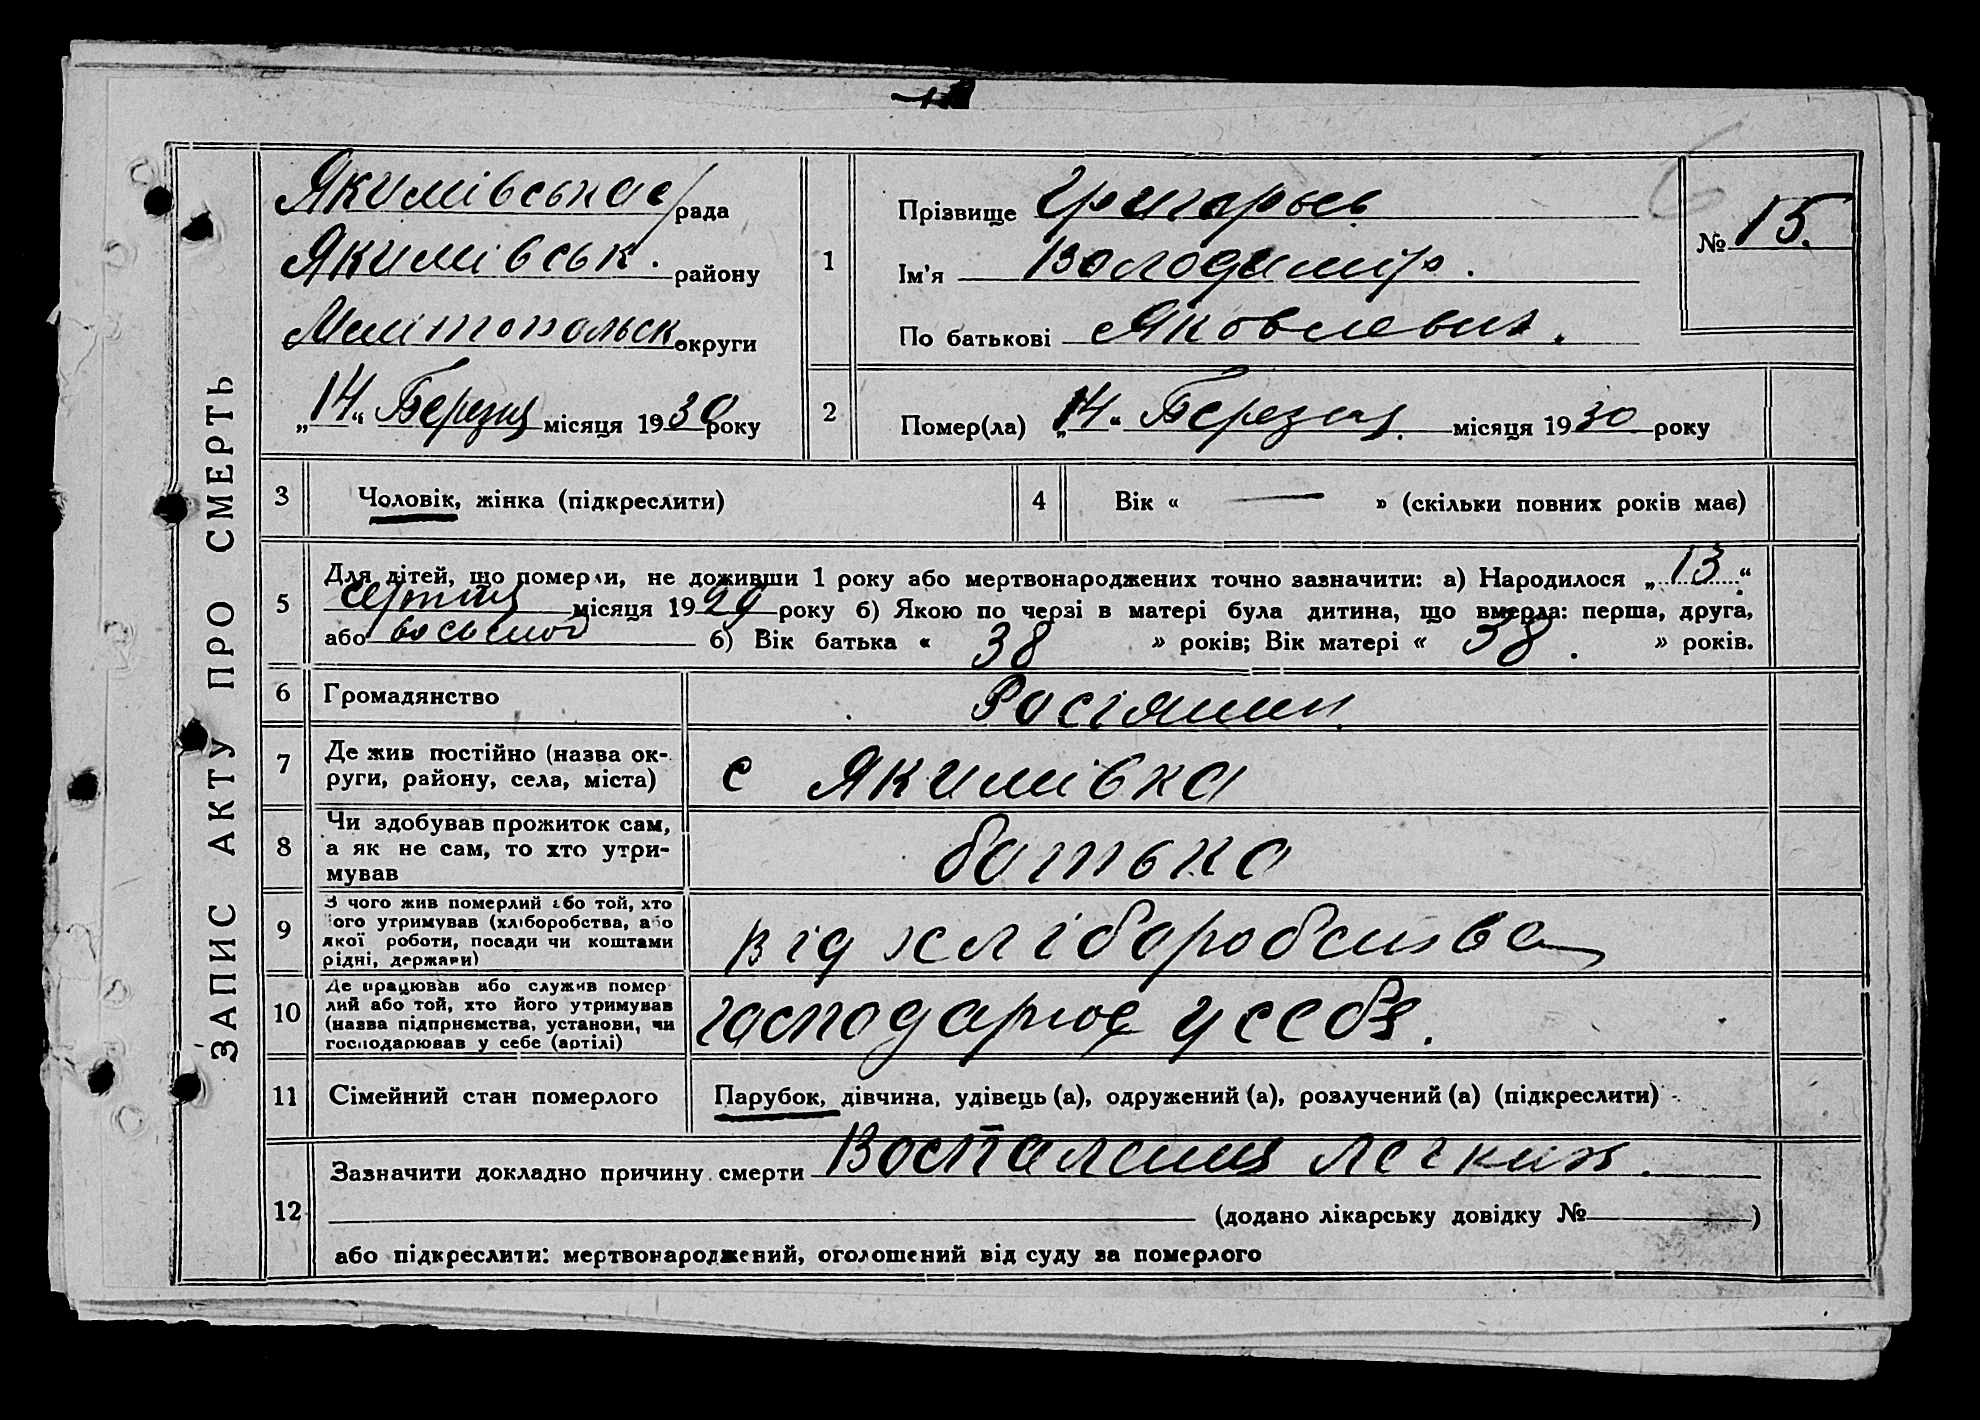 ЗАПИС АКТУ ПРО СМЕРТЬ
Якимівська с/рада
Якимівськ. району
Мелітопольск округи
„14“ Березня місяця 1930 року
1
Прізвище Григорьев
Ім'я Володимир.
По батькові Яковлевич.
№ 15.
6
2
Помер(ла) „14“ Березня місяця 1930 року
3
Чоловік, жінка (підкреслити)
4
Вік « — » (скільки повних років має)
5
Для дітей, що померли, не доживши 1 року або мертвонароджених точно зазначити: а) Народилося „13“
серпня місяця 1929 року б) Якою по черзі в матері була дитина, що вмерла: перша, друга,
або восьмой б) Вік батька « 38 » років; Вік матері « 38. » років.
6
Громадянство
Росіянин
7
Де жив постійно (назва ок-
руги, району, села, міста)
с Якимівка
8
Чи здобував прожиток сам,
а як не сам, то хто утри-
мував
батько
9
З чого жив померлий або той, хто
його утримував (хліборобства, або
якої роботи, посади чи коштами
рідні, держави)
від хліборобства
10
Де працював або служив помер-
лий або той, хто його утримував
(назва підприємства, установи, чи
господарював у себе (артілі)
господарює у себя.
11
Сімейний стан померлого
Парубок, дівчина, удівець (а), одружений (а), розлучений (а) (підкреслити)
12
Зазначити докладно причину смерти Воспаления легких.
(додано лікарську довідку № )
або підкреслити: мертвонароджений, оголошений від суду за померлого